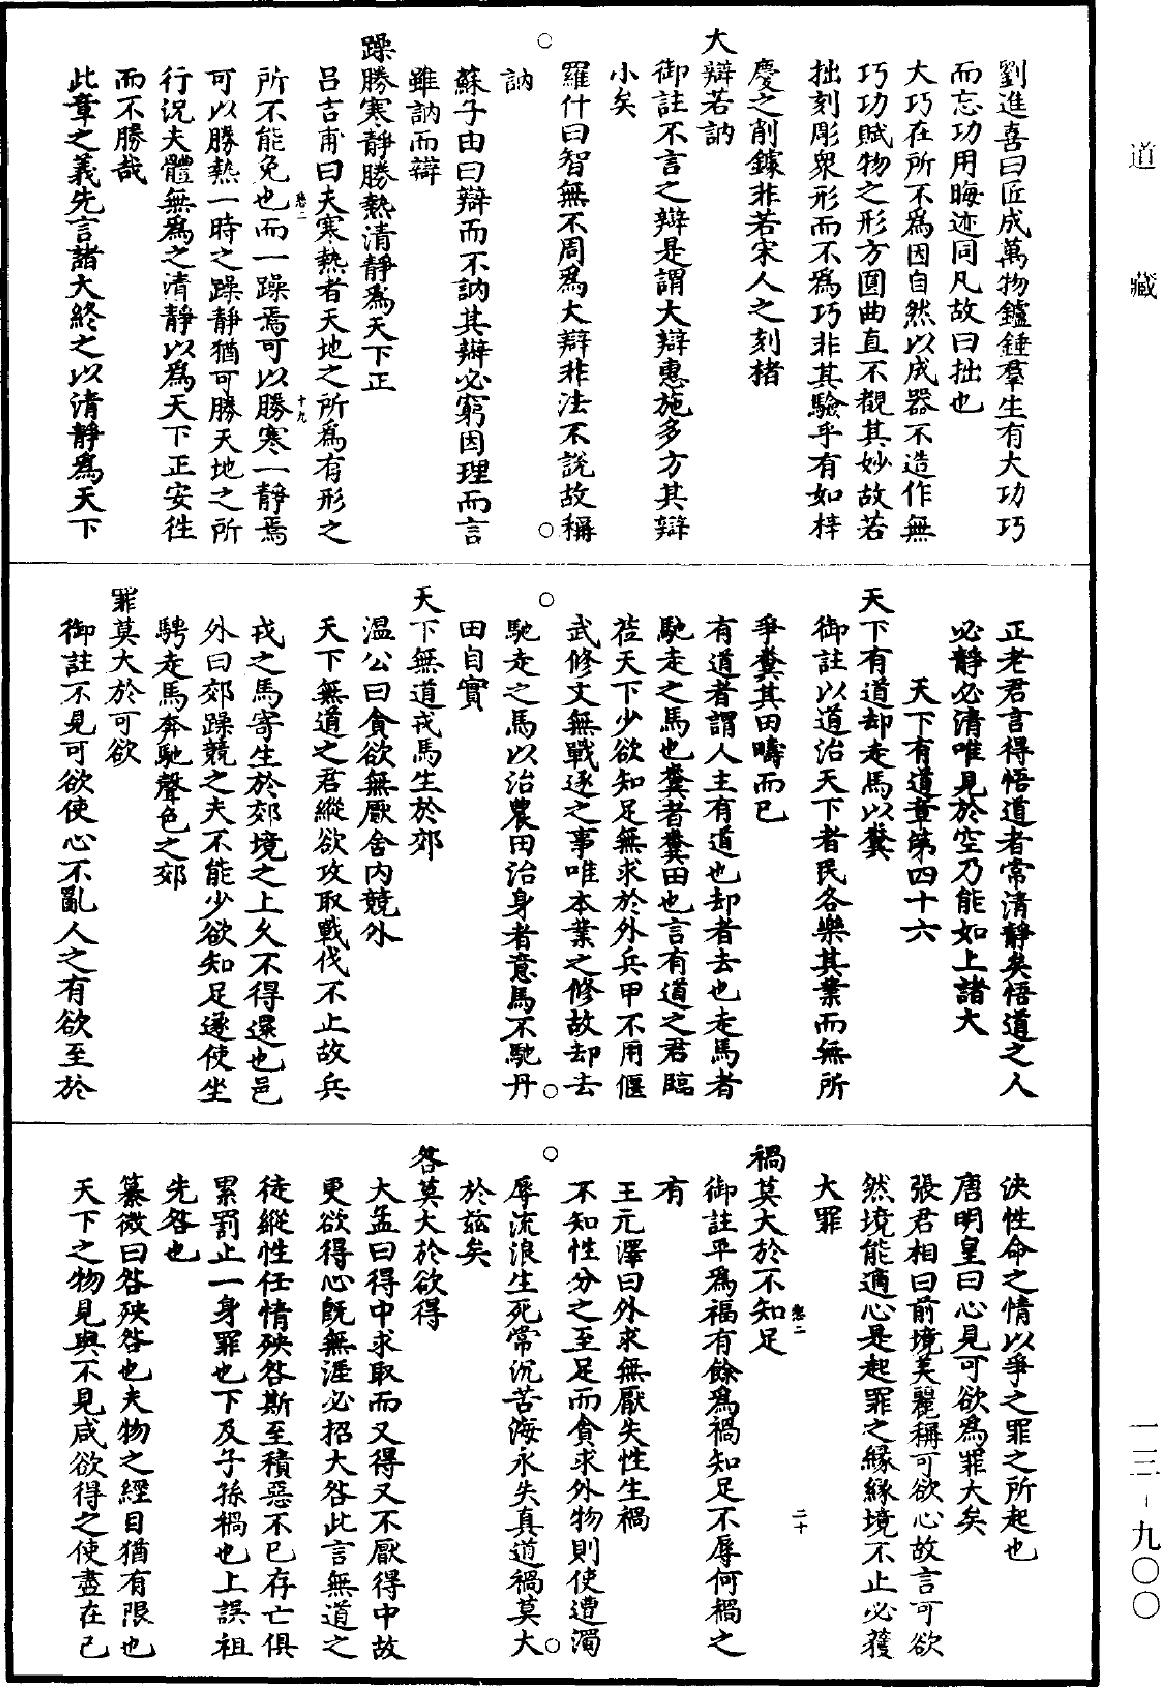 劉進喜曰匠成萬物鑪錘羣生有大功巧
而忘功用晦迹同凡故曰拙也
大巧在所不為因自然以成器不造作無
巧功賦物之形方圓曲直不覩其妙故若
拙刻彫衆形而不為巧非其驗乎有如梓
慶之削鐻非若宋人之刻楮
大辯若訥
御註不言之辯是謂大辯惠施多方其辯
小矣
羅什曰智無不周為大辯非法不說故稱
訥
蘇子由曰辯而不訥其辯必窮因理而言
雖訥而辯
躁勝寒靜勝熱清靜為天下正
呂吉甫曰夫寒熱者天地之所為有形之
所不能免也而一躁焉可以勝寒一靜焉
卷二
十九
可以勝熱一時之躁靜猶可勝天地之所
行況夫體無為之清靜以為天下正安徃
而不勝哉
此章之義先言諸大終之以清靜為天下
正老君言得悟道者常清靜矣悟道之人
必靜必清唯見於空乃能如上諸大
天下有道章第四十六
天下有道却走馬以糞
御註以道治天下者民各樂其業而無所
爭糞其田疇而已
有道者謂人主有道也却者去也走馬者
馳走之馬也糞者糞田也言有道之君臨
莅天下少欲知足無求於外兵甲不用偃
武修文無戰逐之事唯本業之修故却去
馳走之馬以治農田治身者意馬不馳丹
田自實
天下無道戎馬生於郊
温公曰貪欲無厭舍内競外
天下無道之君縱欲攻取戰伐不止故兵
戎之馬寄生於郊境之上久不得還也邑
外曰郊躁競之夫不能少欲知足遂使坐
騁走馬奔馳聲色之郊
罪莫大於可欲
御註不見可欲使心不亂人之有欲至於
決性命之情以爭之罪之所起也
唐明皇曰心見可欲為罪大矣
張君相曰前境美麗稱可欲心故言可欲
然境能適心是起罪之緣緣境不止必獲
大罪
禍莫大於不知足
卷二
二十
御註平為福有餘為禍知足不辱何禍之
有
王元澤曰外求無厭失性生禍
不知性分之至足而貪求外物則使遭濁
辱流浪生死常沉苦海永失真道禍莫大
於兹矣
咎莫大於欲得
大孟曰得中求取而又得又不厭得中故
更欲得心既無涯必招大咎此言無道之
徒縱性任情殃咎斯至積惡不已存亡俱
累罰止一身罪也下及子孫禍也上誤祖
先咎也
纂微曰咎殃咎也夫物之經目猶有限也
天下之物見與不見咸欲得之使盡在己
道藏
一三-九〇〇